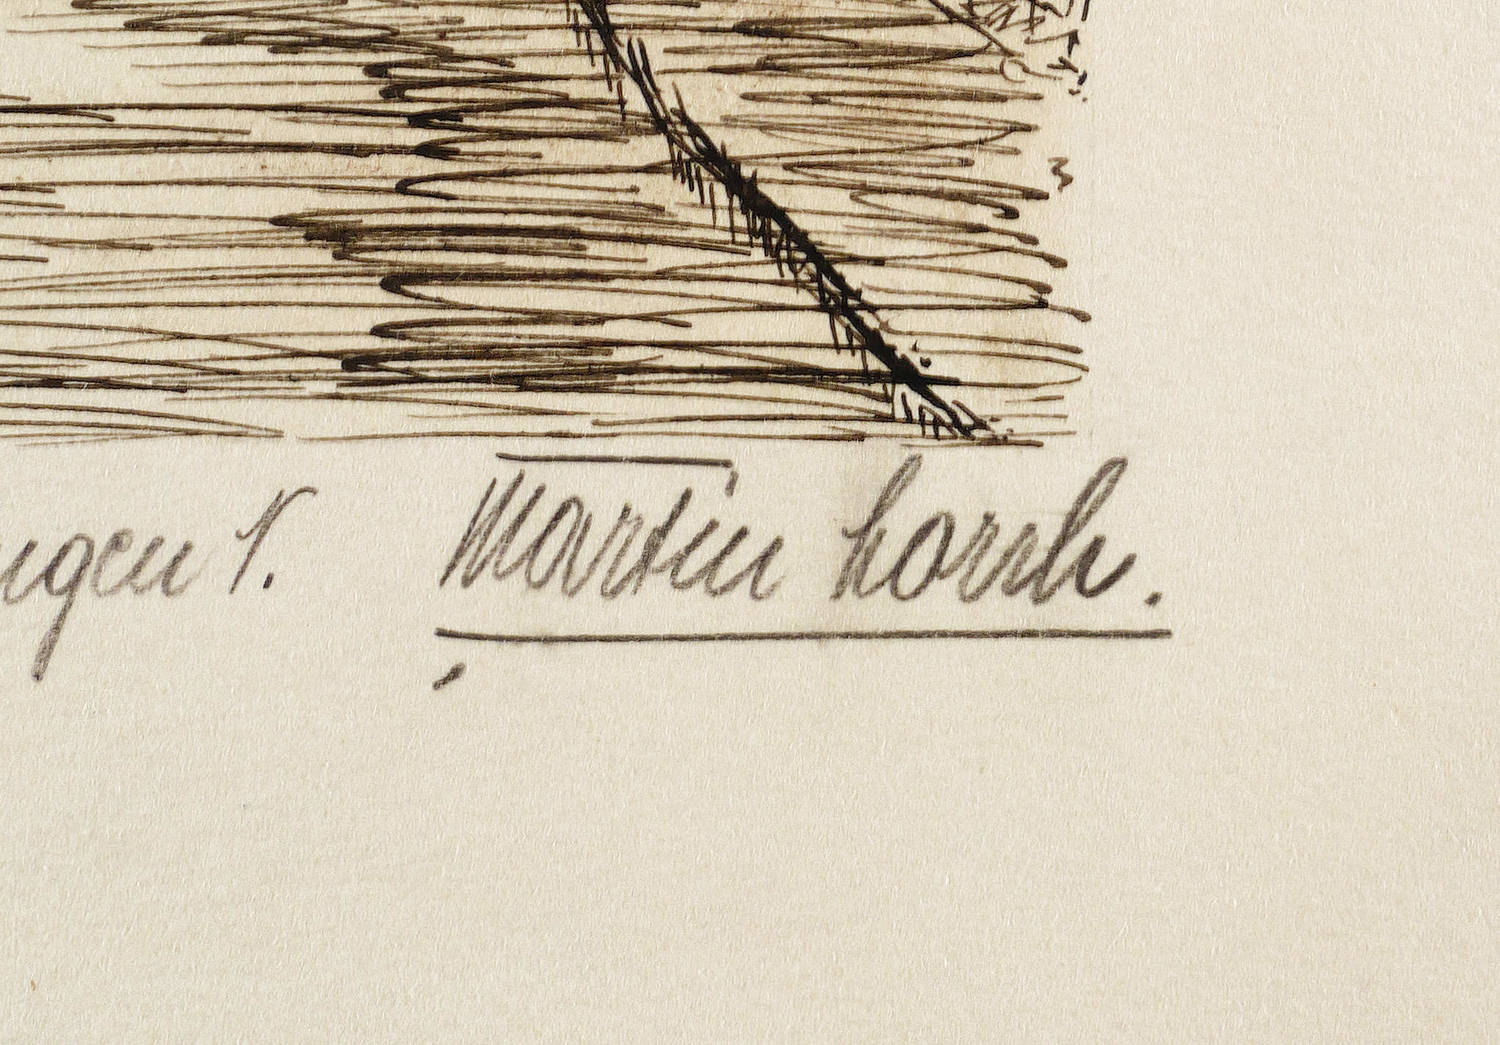 ugen 1. Martin Lorch.